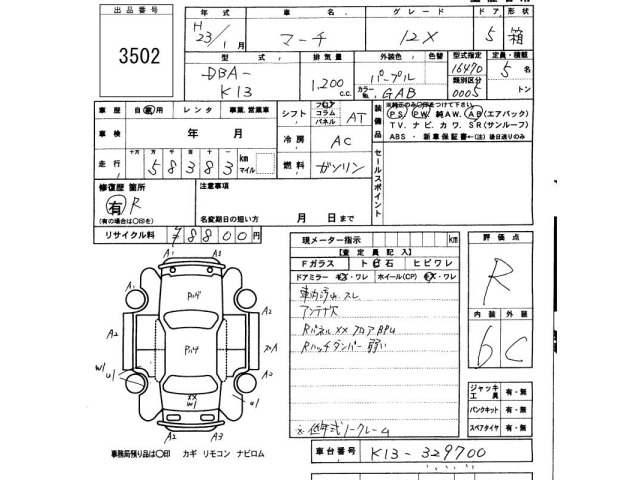 出品番号
3502
年式 車名 グレード ドア 形状
H 23/1月 マーチ 12X 5 箱
型式 排気量 外装色 色替 型式指定 定員・積載
DBA-K13 1,200 c.c. パープル 16470 5名
カラーNo. GAB 類別区分 0005 トン
車歴 自 家用 レンタ 事業、営業車
シフト フロア コラム パネル AT
装備品
※純正のみ○印をつけて下さい
PS, PW, 純AW, AB(エアバック)
TV. ナビ. カワ. SR(サンルーフ)
ABS ・ 新車保証書←(注)後日送りのみ
車検 年 月
冷房 AC
セールスポイント
走行 十万 万 58383 km マイル
燃料 ガソリン
修復歴 箇所
有 R
(有の場合は○印を)
注意事項
名変期日の短い方 月 日まで
リサイクル料 7880 0 円
現メーター指示 km
【査定員記入】
Fガラス ト ビ 石 ヒビワレ
ドアミラー キズ・ワレ ホイール(CP) キズ・ワレ
車内汚れ. スレ
アンテナ欠
Rパネル××フロアBPU
Rハッチダンパー 弱い
※低年式ノークレーム
評価点
R
内装 外装
6 C
ジャッキ工具 有・無
パンクキット 有・無
スペアタイヤ 有・無
車台番号 K13-329700
A1 A3
A1 A2
A2 A2
W1 U1 A2
XX W1 U1
A2 A3
事務局残り品は○印 カギ リモコン ナビロム